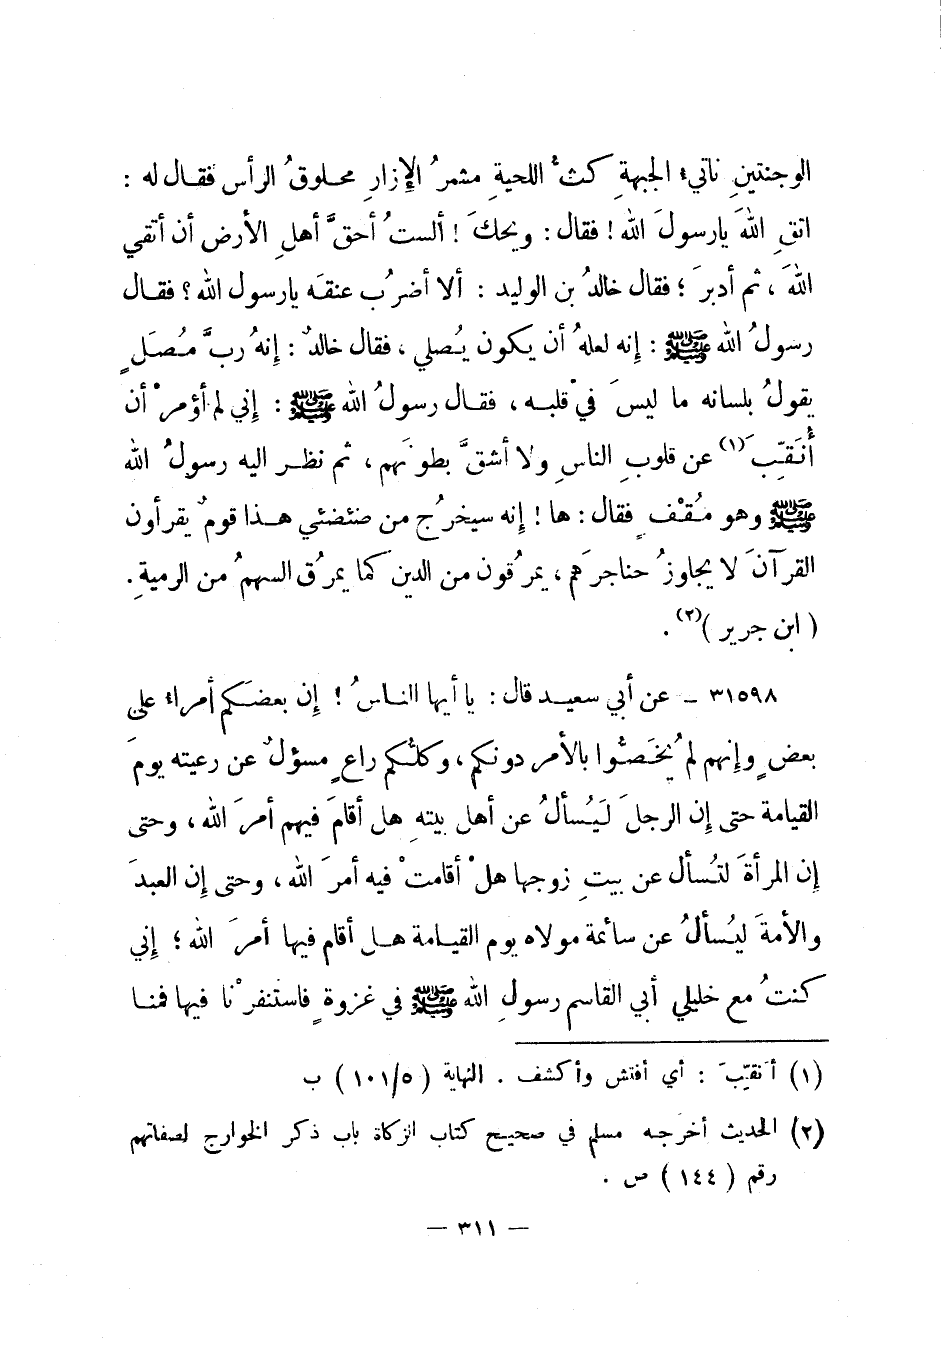 الوجنتينِ ناتيء الجبهةِ كثُّ اللحيةِ مشمرُ الإزارِ محلوقُ الرأس فقال له :
اتقِ اللهَ يارسولَ الله ! فقال : ويحكَ ! ألستُ أحقَّ أهلِ الأرض أن أتقي
اللهَ ، ثم أدبرَ ؛ فقال خالدُ بن الوليد : ألا أضرُب عنقَه يارسول الله ؟ فقال
رسولُ الله ﷺ : إنه لعلهُ أن يكون يُصلي ، فقال خالدٌ : إنهُ ربَّ مُصَلٍ
يقولُ بلسانه ما ليسَ في قلبه ، فقال رسولُ الله ﷺ : إني لم أؤمرْ أن
أُنَقِّبَ (١) عن قلوبِ الناسِ ولا أشقَّ بطونَهم ، ثم نظر اليه رسولُ الله
ﷺ وهو مُقْفٍ فقال : ها ! إنه سيخرُج من ضئضئي هذا قومٌ يقرأون
القرآنَ لا يجاوزُ حناجرَهم ، يمرُقون من الدين كما يمرُق السهمُ من الرميةِ .
( ابن جرير ) (٢) .
٣١٥٩٨ ـ عن أبي سعيد قال : يا أيها الناسُ ! إن بعضَكم أمراء على
بعضٍ وإنهم لم يُخَصُّوا بالأمر دونكم ، وكلُّكم راعٍ مسؤلٌ عن رعيته يومَ
القيامة حتى إن الرجلَ لَيُسألُ عن أهل بيتهِ هل أقامَ فيهم أمرَ الله ، وحتى
إن المرأةَ لتُسأل عن بيتِ زوجها هلْ أقامتْ فيه أمرَ الله ، وحتى إن العبدَ
والأمةَ ليُسألُ عن سائمة مولاه يوم القيامة هل أقام فيها أمرَ الله ؛ إني
كنتُ مع خليلي أبي القاسم رسولِ الله ﷺ في غزوةٍ فاستنفرْنا فيها فمنا
(١) أنقّبَ : أي أفتش وأكشف . النهاية ( ١٠١/٥ ) ب
(٢) الحديث أخرجه مسلم في صحيح كتاب الزكاة باب ذكر الخوارج لصفاتهم
رقم ( ١٤٤ ) ص .
— ٣١١ —